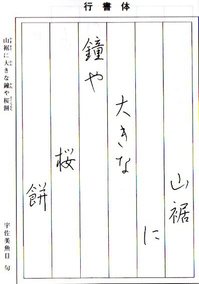 行書体
山裾に
大きな
鐘や
桜
餅
山裾に大きな鐘や桜餅
宇佐美魚目 句